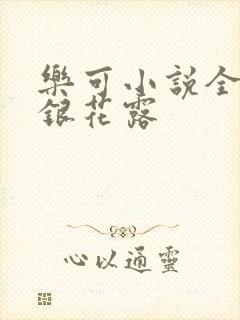 樂可小説全
銀花露
心以通靈